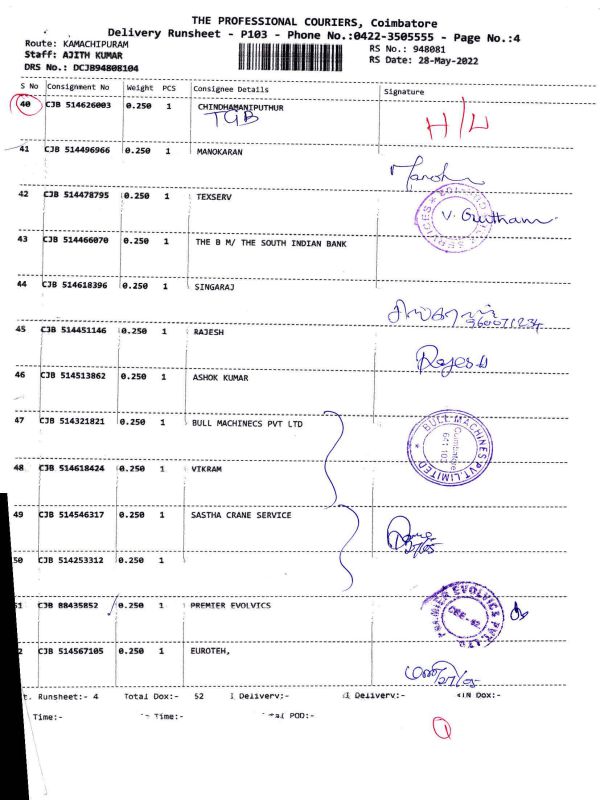 THE PROFESSIONAL COURIERS, Coimbatore
Delivery Runsheet - P103 - Phone No.:0422-3505555 - Page No.:4
Route: KAMACHIPURAM
RS No.: 948081
Staff: AJITH KUMAR
RS Date: 28-May-2022
DRS No.: DCJB94808104
S No Consignment No Weight PCS Consignee Details Signature
40 CJB 514626003 0.250 1 CHINDHAMANIPUTHUR
TGB H/L
41 CJB 514496966 0.250 1 MANOKARAN
42 CJB 514478795 0.250 1 TEXSERV
V. Gowtham
43 CJB 514466070 0.250 1 THE B M/ THE SOUTH INDIAN BANK
44 CJB 514618396 0.250 1 SINGARAJ
45 CJB 514451146 0.250 1 RAJESH
Rajesh
46 CJB 514513862 0.250 1 ASHOK KUMAR
47 CJB 514321821 0.250 1 BULL MACHINECS PVT LTD
BULL MACHINES PVT.LIMITED
Coimbatore
641 103
48 CJB 514618424 0.250 1 VIKRAM
49 CJB 514546317 0.250 1 SASTHA CRANE SERVICE
27/05
50 CJB 514253312 0.250 1
51 CJB 88435852 0.250 1 PREMIER EVOLVICS
PREMIER EVOLVICS PVT. LTD
CBE
2 CJB 514567105 0.250 1 EUROTEH,
27/05
t. Runsheet:- 4 Total Dox:- 52 Delivery:- Delivery:- Dox:-
Time:- Time:- POD:-